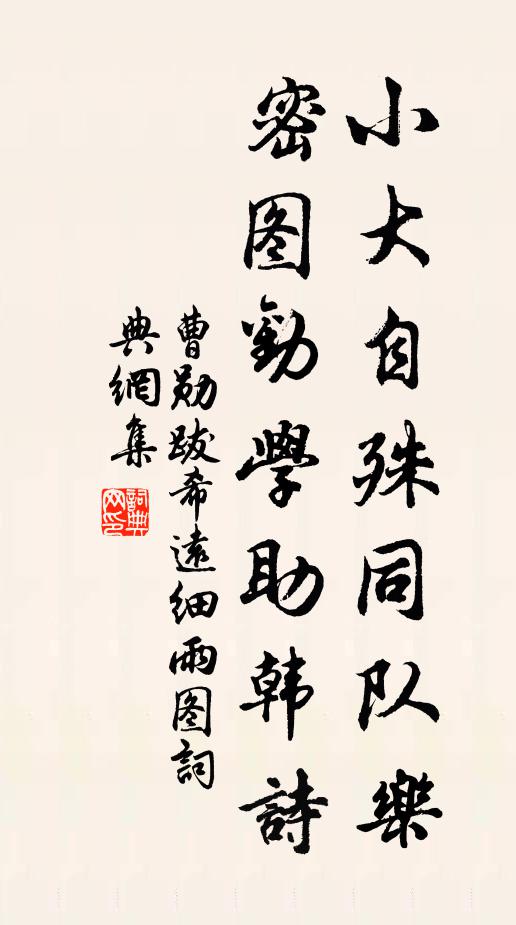 小大自殊同队樂
密图勸學助韩詩
曹勋跋希遠细雨图詞
典網集
詞典网印